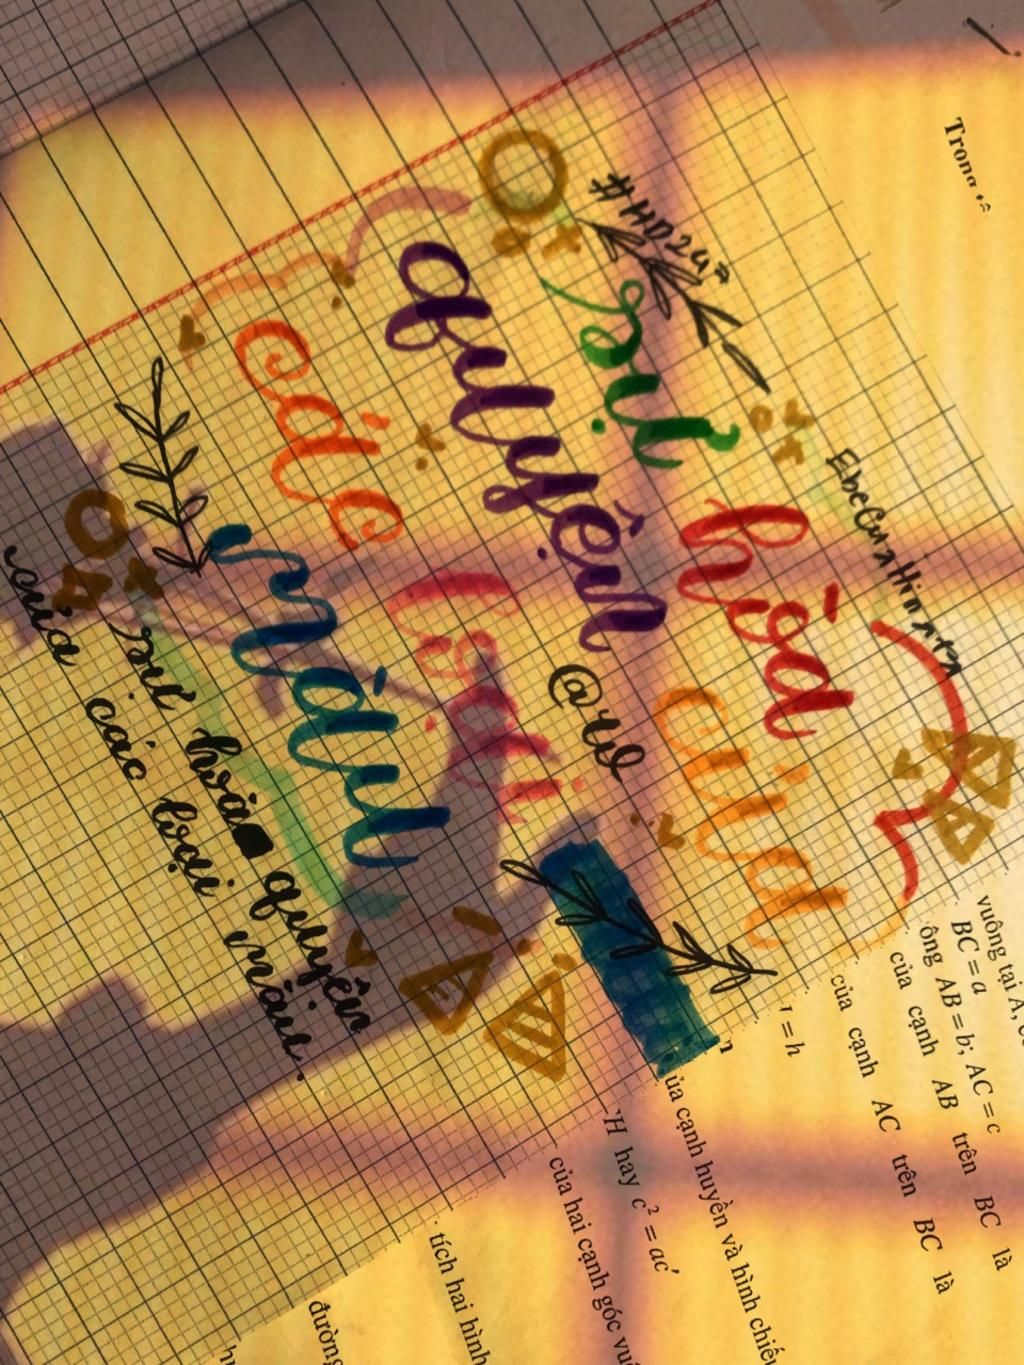 #HD247
sự hòa
quyện của
các loại
màu
@rd
sự hoà quyện
của các loại màu.
Trong
vuông tại A,
BC = a
ông AB = b; AC = c
của cạnh AB trên BC là
của cạnh AC trên BC là
= h
ủa cạnh huyền và hình chiếu
H hay c² = ac'
của hai cạnh góc vuô
tích hai hình
đường